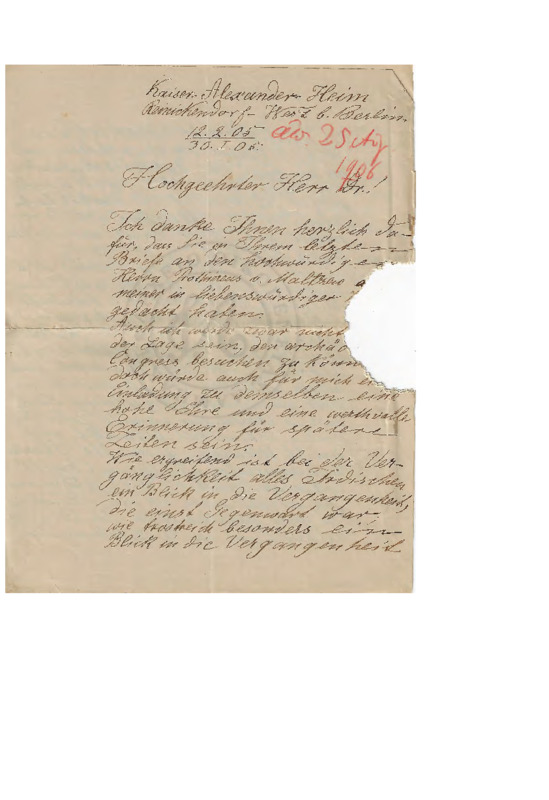 Kaiser-Alexander-Heim
Reinickendorf-West b. Berlin.
12.2.05
30.I 05.
1906
Hochgeehrter Herr Dr.!
Ich danke Ihnen herzlich da-
für, das Sie in Ihrem letzten
Briefe an den hochwürdigen
Herrn v. Maltzew
meiner in liebenswürdiger
gedacht haben.
Auch ich werde zwar nicht
der Lage sein, den archäo
Congress besuchen zu könn
doch würde auch für mich
Einladung zu demselben eine
hohe Ehre und eine werthvolle
Erinnerung für spätere
Zeiten sein.
Wie ergreifend ist bei der Ver-
gänglichkeit alles Irdischen
ein Blick in die Vergangenheit,
die einst Gegenwart war
wie trostreich besonders ein
Blick in die Vergangenheit